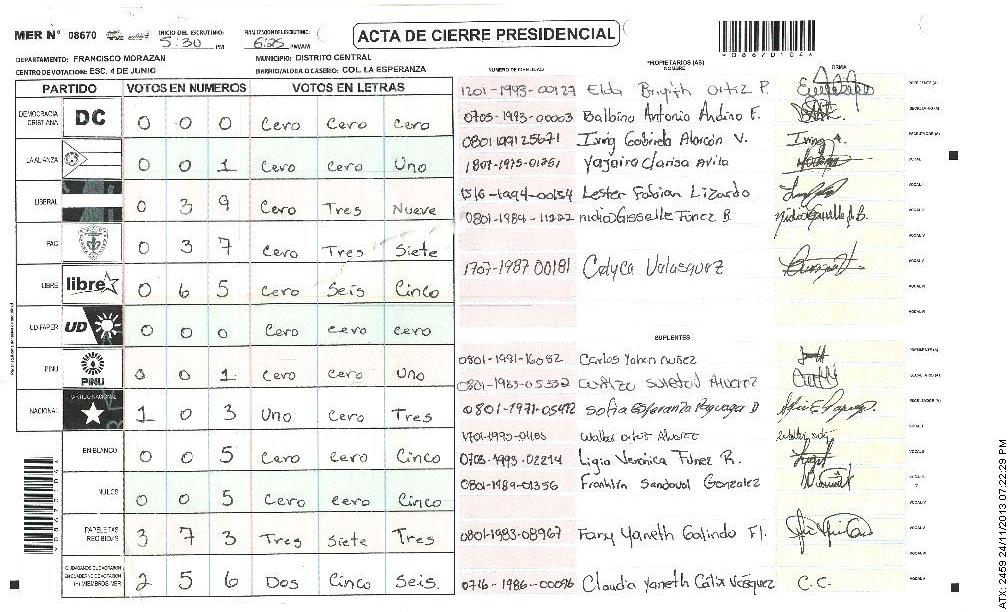 MER N° 08670 INICIO DEL ESCRUTINIO: 5:30 PM FINALIZACION DEL ESCRUTINIO: 6:25 PM/AM
ACTA DE CIERRE PRESIDENCIAL
DEPARTAMENTO: FRANCISCO MORAZAN MUNICIPIO: DISTRITO CENTRAL
CENTRO DE VOTACION: ESC. 4 DE JUNIO BARRIO/ALDEA O CASERIO: COL. LA ESPERANZA
PARTIDO VOTOS EN NUMEROS VOTOS EN LETRAS
DEMOCRACIA CRISTIANA DC 0 0 0 Cero Cero Cero
LA ALIANZA 0 0 1 Cero Cero Uno
LIBERAL 0 3 9 Cero Tres Nueve
PAC 0 3 7 Cero Tres Siete
LIBRE libre 0 6 5 Cero Seis Cinco
UD FAPER UD 0 0 0 Cero cero cero
PINU PINU 0 0 1 Cero cero Uno
NACIONAL PARTIDO NACIONAL 1 0 3 Uno Cero Tres
EN BLANCO 0 0 5 Cero cero Cinco
NULOS 0 0 5 Cero cero Cinco
PAPELETAS RECIBIDAS 3 7 3 Tres Siete Tres
CIUDADANOS QUE VOTARON EN CUADERNO DE VOTACION (+) MIEMBROS MER 2 5 6 Dos Cinco Seis.
NUMERO DE IDENTIDAD PROPIETARIOS (AS) NOMBRE FIRMA
1201-1993-00127 Elda Ortiz P. PRESIDENTE (A)
0705-1993-00003 Balbino Antonio Andino F. SECRETARIO (A)
0801199125671 Iving Gabriela Alarcón V. ESCRUTADOR (A)
1807-1975-01261 Yagaira Clarisa Avila VOCAL I
Lester Fabian Lizardo
0801-1984-11222 nidia Gisselle Funez B.
1707-1987 00181 Velasquez
SUPLENTES
0801-1991-16082 Carlos Yohan nuñez PRESIDENTE (A)
0801-1983-05332 Suledad Alvarez SECRETARIO (A)
0801-1971-05472 Sofia Esperanza D ESCRUTADOR (A)
Walter Ortiz Alvarez
0703-1993-02214 Ligia Veronica Funez R.
0801-1989-01356 Franklin Sandoval Gonzalez
0801-1983-08967 Fany Yaneth Galindo Fl.
0716-1986-00096 Claudia Yaneth Calix Vásquez C.C.
ATX: 2459 24/11/2013 07:22:29 PM